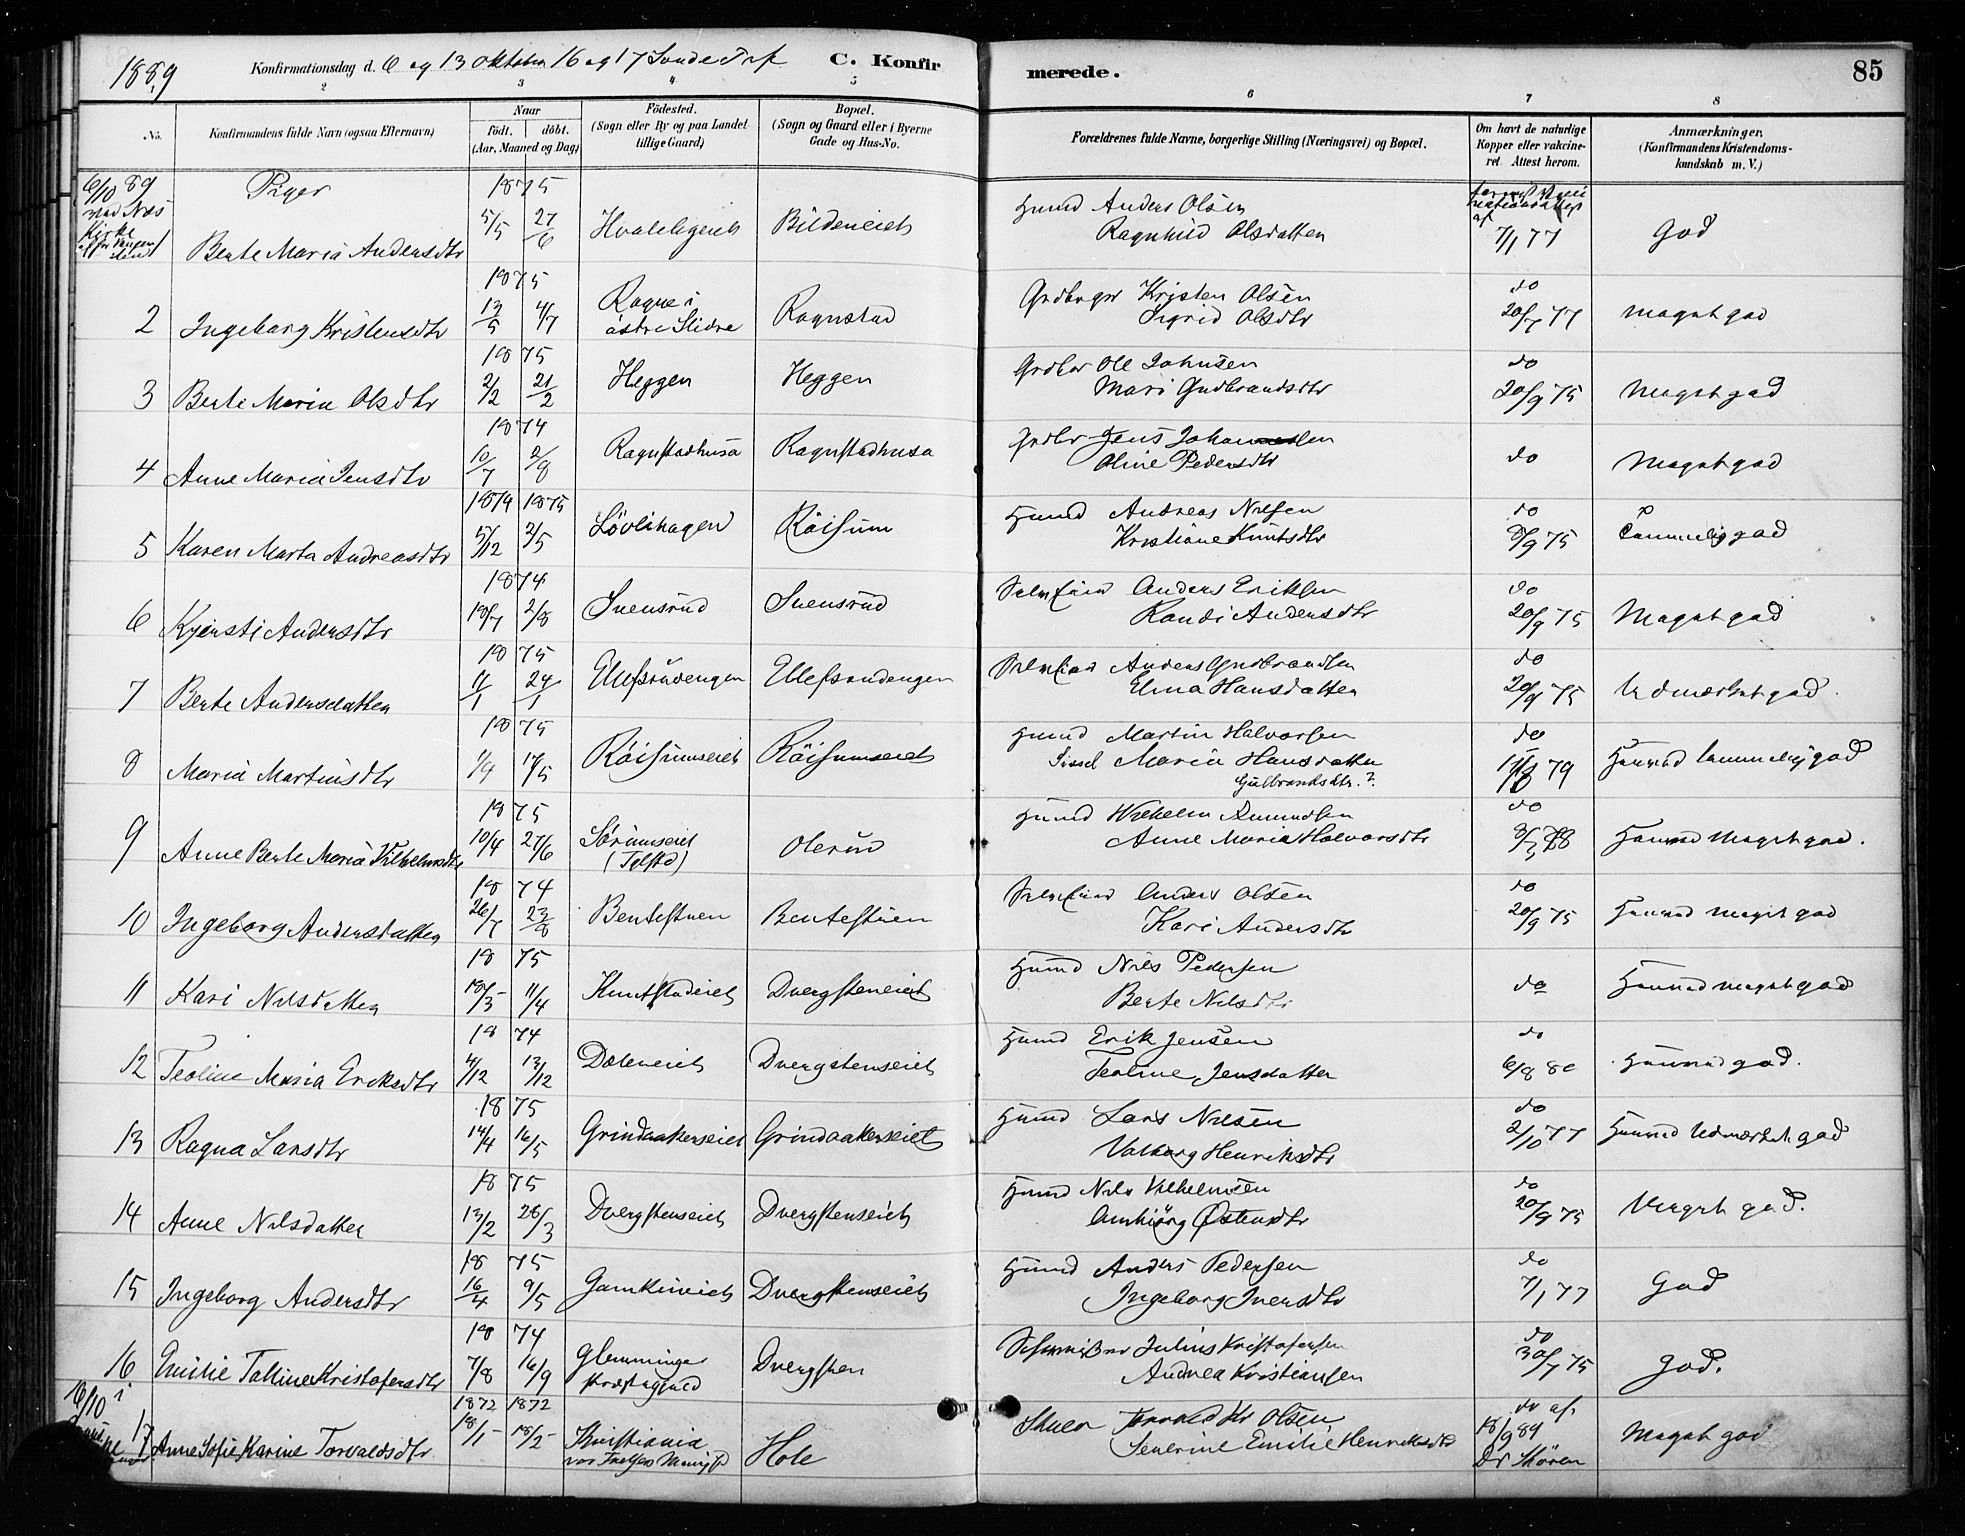 1889 Konfirmationsdag d. 6 og 13 Oktober 16 og 17 Sonde Traf C. Konfir merede. 85
2 3 4 5 6 7 8
No. Konfirmandens fulde Navn (ogsaa Efternavn) Naar født. døbt. (Aar, Maaned og Dag) Födested. (Sogn eller By og paa Landet tillige Gaard) Bopæl. (Sogn og Gaard eller i Byerne Gade og Hus-No.) Forældrenes fulde Navne, borgerlige Stilling (Næringsvei) og Bopæl. Om havt de naturlige Kopper eller vakcineret. Attest herom. Anmærkninger, (Konfirmandens Kristendomskundskab m. V.)
6/10 89 Piger 1875
Berte Maria Andersdtr 5/5 27/6 Hvalebyeiet Bildeneiet Husmd Anders Olsen
Ragnhild Olsdatten 7/1 77 God
1875 do
2 Ingeborg Kristensdtr 13/5 4/7 Rogne i østre Slidre Ragnstad Grdbrger Kristen Olsen
Sigrid Olsdtr 20/7 77 Meget god
1875 do
3 Berte Maria Olsdtr 2/2 21/2 Heggen Heggen Grdbr Ole Johnsen
Mari Gudbrandsdtr 20/9 75 Meget god
1874
4 Anne Maria Jensdtr 10/7 2/8 Ragnstadhusa Ragnstadhusa Grdbr Jens Johannesen
Oline Pedersdtr do Meget god
1874 1875 do
5 Karen Marta Andreasdtr 5/12 2/5 Løvlihagen Röisum Husmd Andreas Nilsen
Kristiane Knutsdtr 8/9 75 Temmelig god
1874 do
6 Kjersti Andersdtr 18/7 2/8 Svensrud Svensrud Selveier Anders Eriksen
Randi Andersdtr 20/9 75 Meget god
1875 do
7 Berte Andersdatten 4/1 24/1 Ellefsrudengen Ellefsrudengen Selveier Anders Gudbrandsen
Elina Hansdatten 20/9 75 Udmærket god.
1875 do
8 Maria Martinsdtr 1/4 17/5 Röisumseiet Röisumseiet Husmd Martin Halvorsen
Sissel Maria Hansdatten
Gulbrandsdtr.? 79 Hannad temmelig god
1875 do
9 Anne Berte Maria Vilhelmsdtr 10/4 27/6 Sørumseiet (Tolstad) Olerud Husmd Vilhelm Amundsen
Anne Maria Halvorsdtr Hannad Meget god.
1874 do
10 Ingeborg Andersdatten 26/7 23/8 Bentestuen Bentestuen Selveier Anders Olsen
Kari Andersdtr 20/9 75 Hannad meget god
1875
11 Kari Nilsdatten 18/3 11/4 Knutstadeiet Dvergsteneiet Husmd Nils Pedersen
Berte Nilsdtr do Hannad meget god
1874 do
12 Teoline Maria Eriksdtr 4/12 13/12 Daleneiet Dvergstenseiet Husmd Erik Jensen
Teoline Jensdatter 6/8 80 Hannad god.
1875 do
13 Ragna Larsdtr 14/4 16/5 Grindaakerseiet Grindaakerseiet Husmd Lars Nilsen
Valborg Henriksdtr 2/10 77 Hannad Udmærket god
1875 do
14 Anne Nilsdatter 13/2 28/3 Dvergstenseiet Dvergstenseiet Husmd Nils Vilhelmsen
Ambjørg Østensdtr 20/9 75 Meget god.
1875 do
15 Ingeborg Andersdtr 16/4 9/5 Gamkineiet Dvergstenseiet Husmd Anders Pedersen
Ingeborg Iversdtr 7/1 77 God
1874 do
16 Emilie Talline Kristofersdtr 7/8 16/9 Glemminge Præstegjeld Dvergsten Julius Kristofersen
Andrea Kristiansen 30/7 75 God.
16/10 i 1872 1872 do af
17 Anne Sofie Karine Torvaldsdtr 18/1 18/2 Kristiania Hole Torvald Kr Olsen
Severine Emilie Henriksdtr 18/9 89
Dr Thoren Meget god